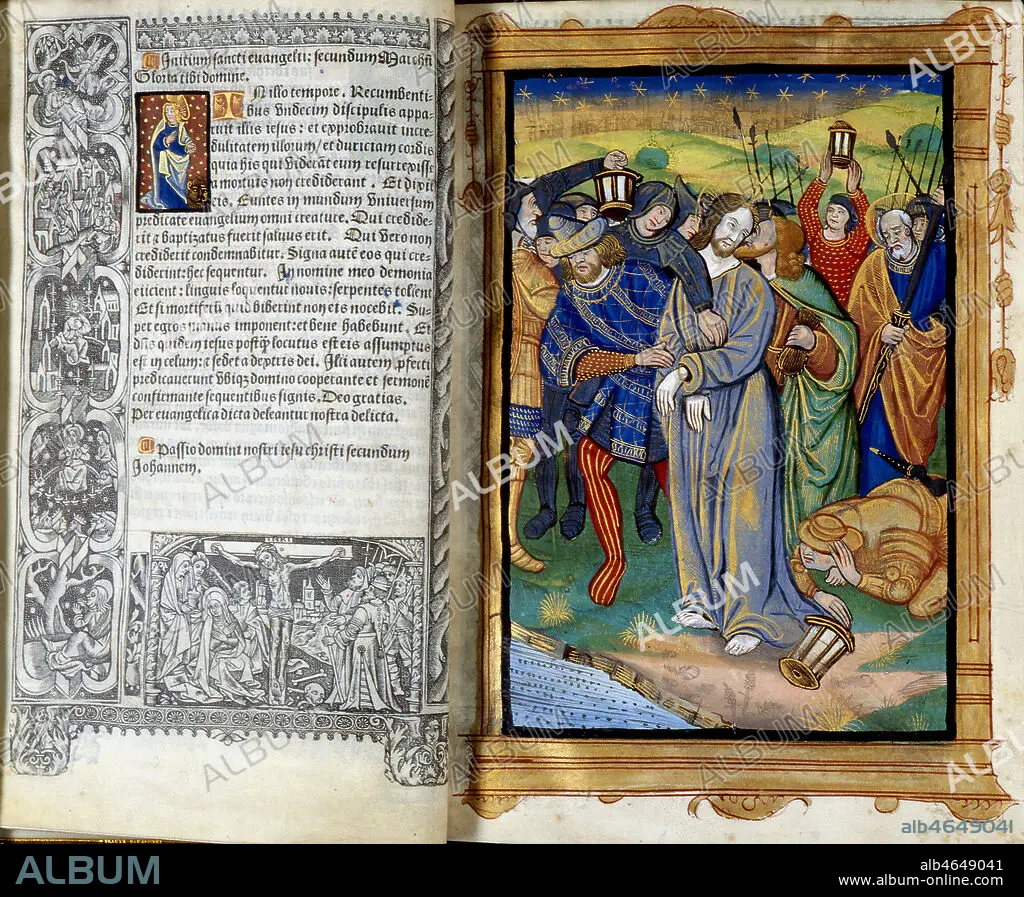 Initium sancti evangelii: secundum Marcum
Gloria tibi domine.
IN illo tempore. Recumbenti-
bus undecim discipulis appa-
ruit illis iesus: et exprobravit incre
dulitatem illorum/et duriciam cordis
quia his qui viderāt eum resurrexisse
a mortuis non crediderant. Et dixit
eis. Euntes in mundum universum
predicate evangelium omni creature. Qui credide-
rit & baptizatus fuerit salvus erit. Qui vero non
crediderit condemnabitur. Signa autē eos qui cre-
diderint: hec sequentur. In nomine meo demonia
eiicient: linguis loquentur novis: serpentes tollent
Et si mortiferū quid biberint non eis nocebit. Su-
per egros manus imponent: et bene habebunt. Et
dn̄s quidem iesus postq̄ locutus est eis assumptus
est in celum: & sedet a dextris dei. Illi autem pfecti
predicaverunt ubiq domino cooperante et sermonē
confirmante sequentibus signis. Deo gratias.
Per evangelica dicta deleantur nostra delicta.
Passio domini nostri iesu christi secundum
Johannem.
INRI
alb4649041
ALBUM
alb4649041
www.album-online.com